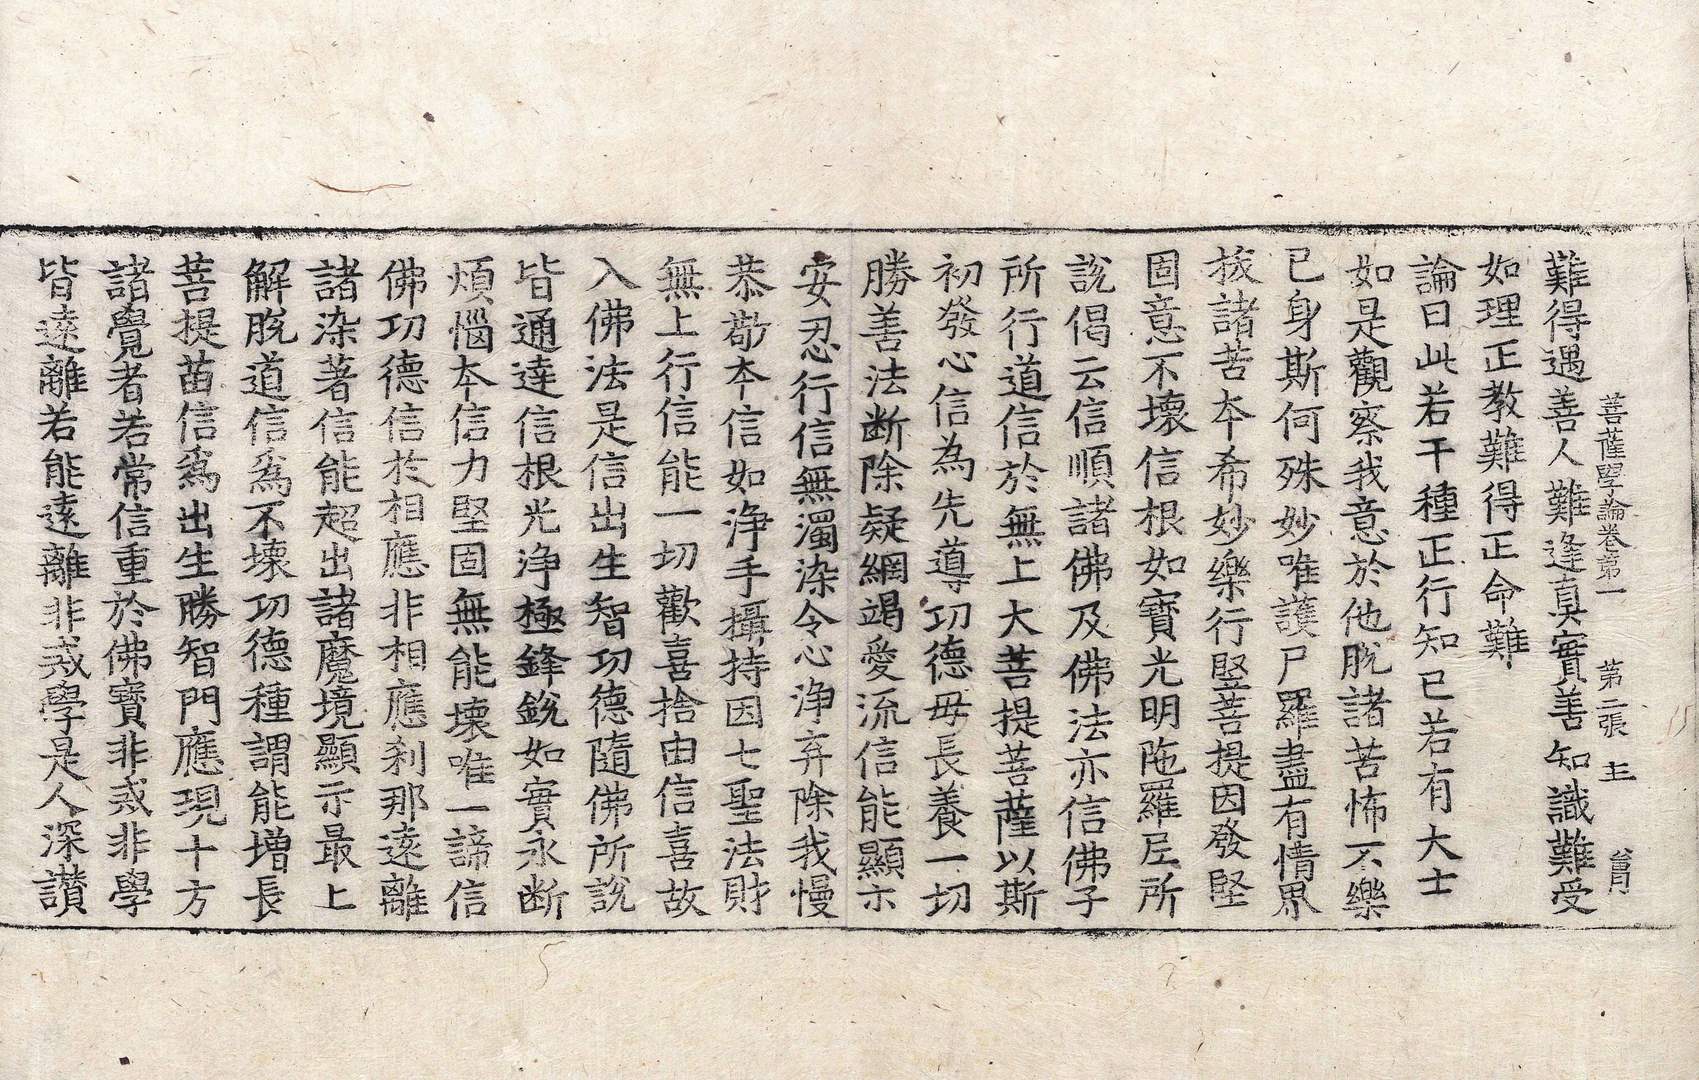 菩薩學論卷第一 第二張 主
難得遇善人難逢真實善知識難受
如理正教難得正命難
論曰此若干種正行知已若有大士
如是觀察我意於他脫諸苦怖不樂
已身斯何殊妙唯護尸羅盡有情界
拔諸苦本希妙樂行堅菩提因發堅
固意不壞信根如寶光明陁羅尼所
說偈云信順諸佛及佛法亦信佛子
所行道信於無上大菩提菩薩以斯
初發心信為先導功德母長養一切
勝善法斷除疑網竭愛流信能顯示
安忍行信無濁染令心淨弃除我慢
恭敬本信如淨手攝持因七聖法財
無上行信能一切歡喜捨由信喜故
入佛法是信出生智功德隨佛所說
皆通達信根光淨極鋒銳如實永斷
煩惱本信力堅固無能壞唯一諦信
佛功德信於相應非相應剎那遠離
諸染著信能超出諸魔境顯示最上
解脫道信為不壞功德種謂能增長
菩提苗信為出生勝智門應現十方
諸覺者若常信重於佛寶非戒非學
皆遠離若能遠離非戒學是人深讚